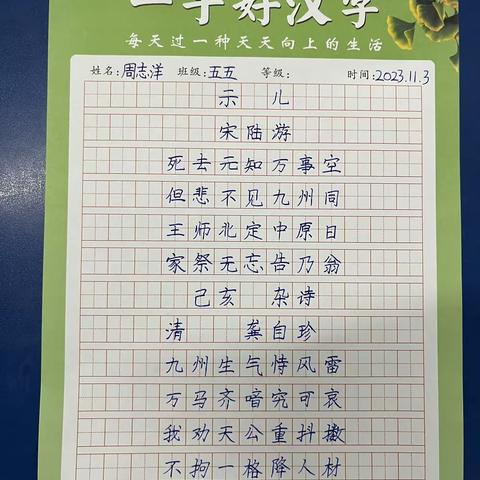 一手好汉字
每天过一种天天向上的生活
姓名:周志洋 班级:五五 等级: 时间:2023.11.3
示儿
宋陆游
死去元知万事空
但悲不见九州同
王师北定中原日
家祭无忘告乃翁
己亥 杂诗
清 龚自珍
九州生气恃风雷
万马齐喑究可哀
我劝天公重抖擞
不拘一格降人材